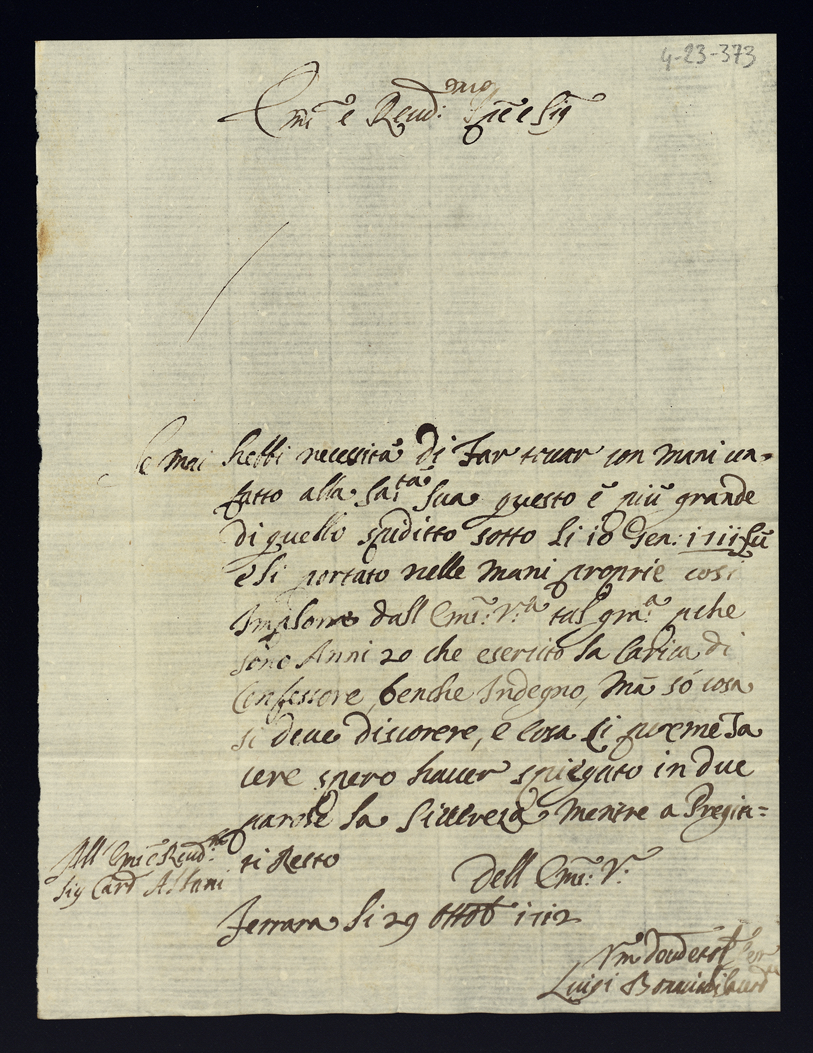 4-23-373
Em̃o e Reud:mo Pñe e Sig
Se mai hebbi necessità di Far tenar con mani un=
fatto alla Sa:tà Sua questo è più grande
di quello speditto sotto li 10 Gen: 1711 fù
e li portato nelle mani proprie così
Imploro dall Em̃: V:a tal gra:a pche
sono Anni 20 che esercito la Carica di
Confessore, benche Indegno, mà sò cosa
si deve discorere, e cosa si puemeta
cere spero hauer spiegato in due
parole la Siccreza mentre a Pregiti=
ti Resto
All Em̃o e Reud:mo
Sig Card Albani
dell Em̃: V:
Ferrara li 29 Ottob 1712
Vm̃o Deu
Luigi